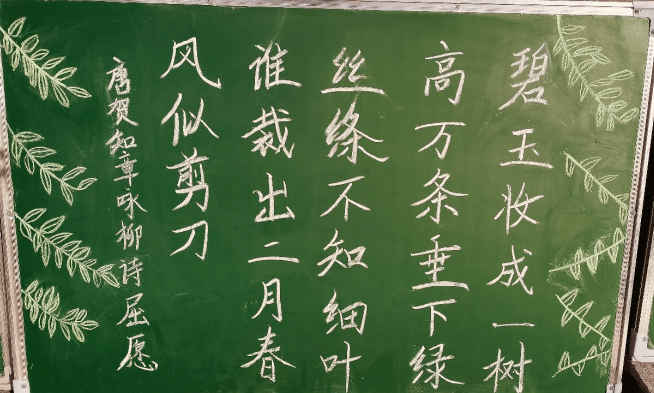 碧玉妆成一树
高万条垂下绿
丝绦不知细叶
谁裁出二月春
风似剪刀
唐贺知章咏柳诗屈愿